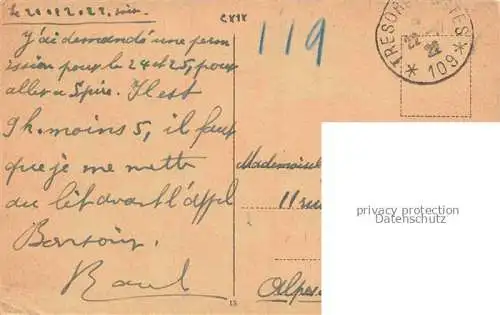 Le 21.12.22, soir
J'ai demandé une perm
ission pour le 24 et 25, pour
aller a Spire. Il est
9h. moins 5, il faut
que je me mette
au lit avant l'appel
Bonsoir.
Raoul
119
TRESOR POSTES
22
22
* 109 *
Mademoiselle
11 rue
Alpes
privacy protection
13